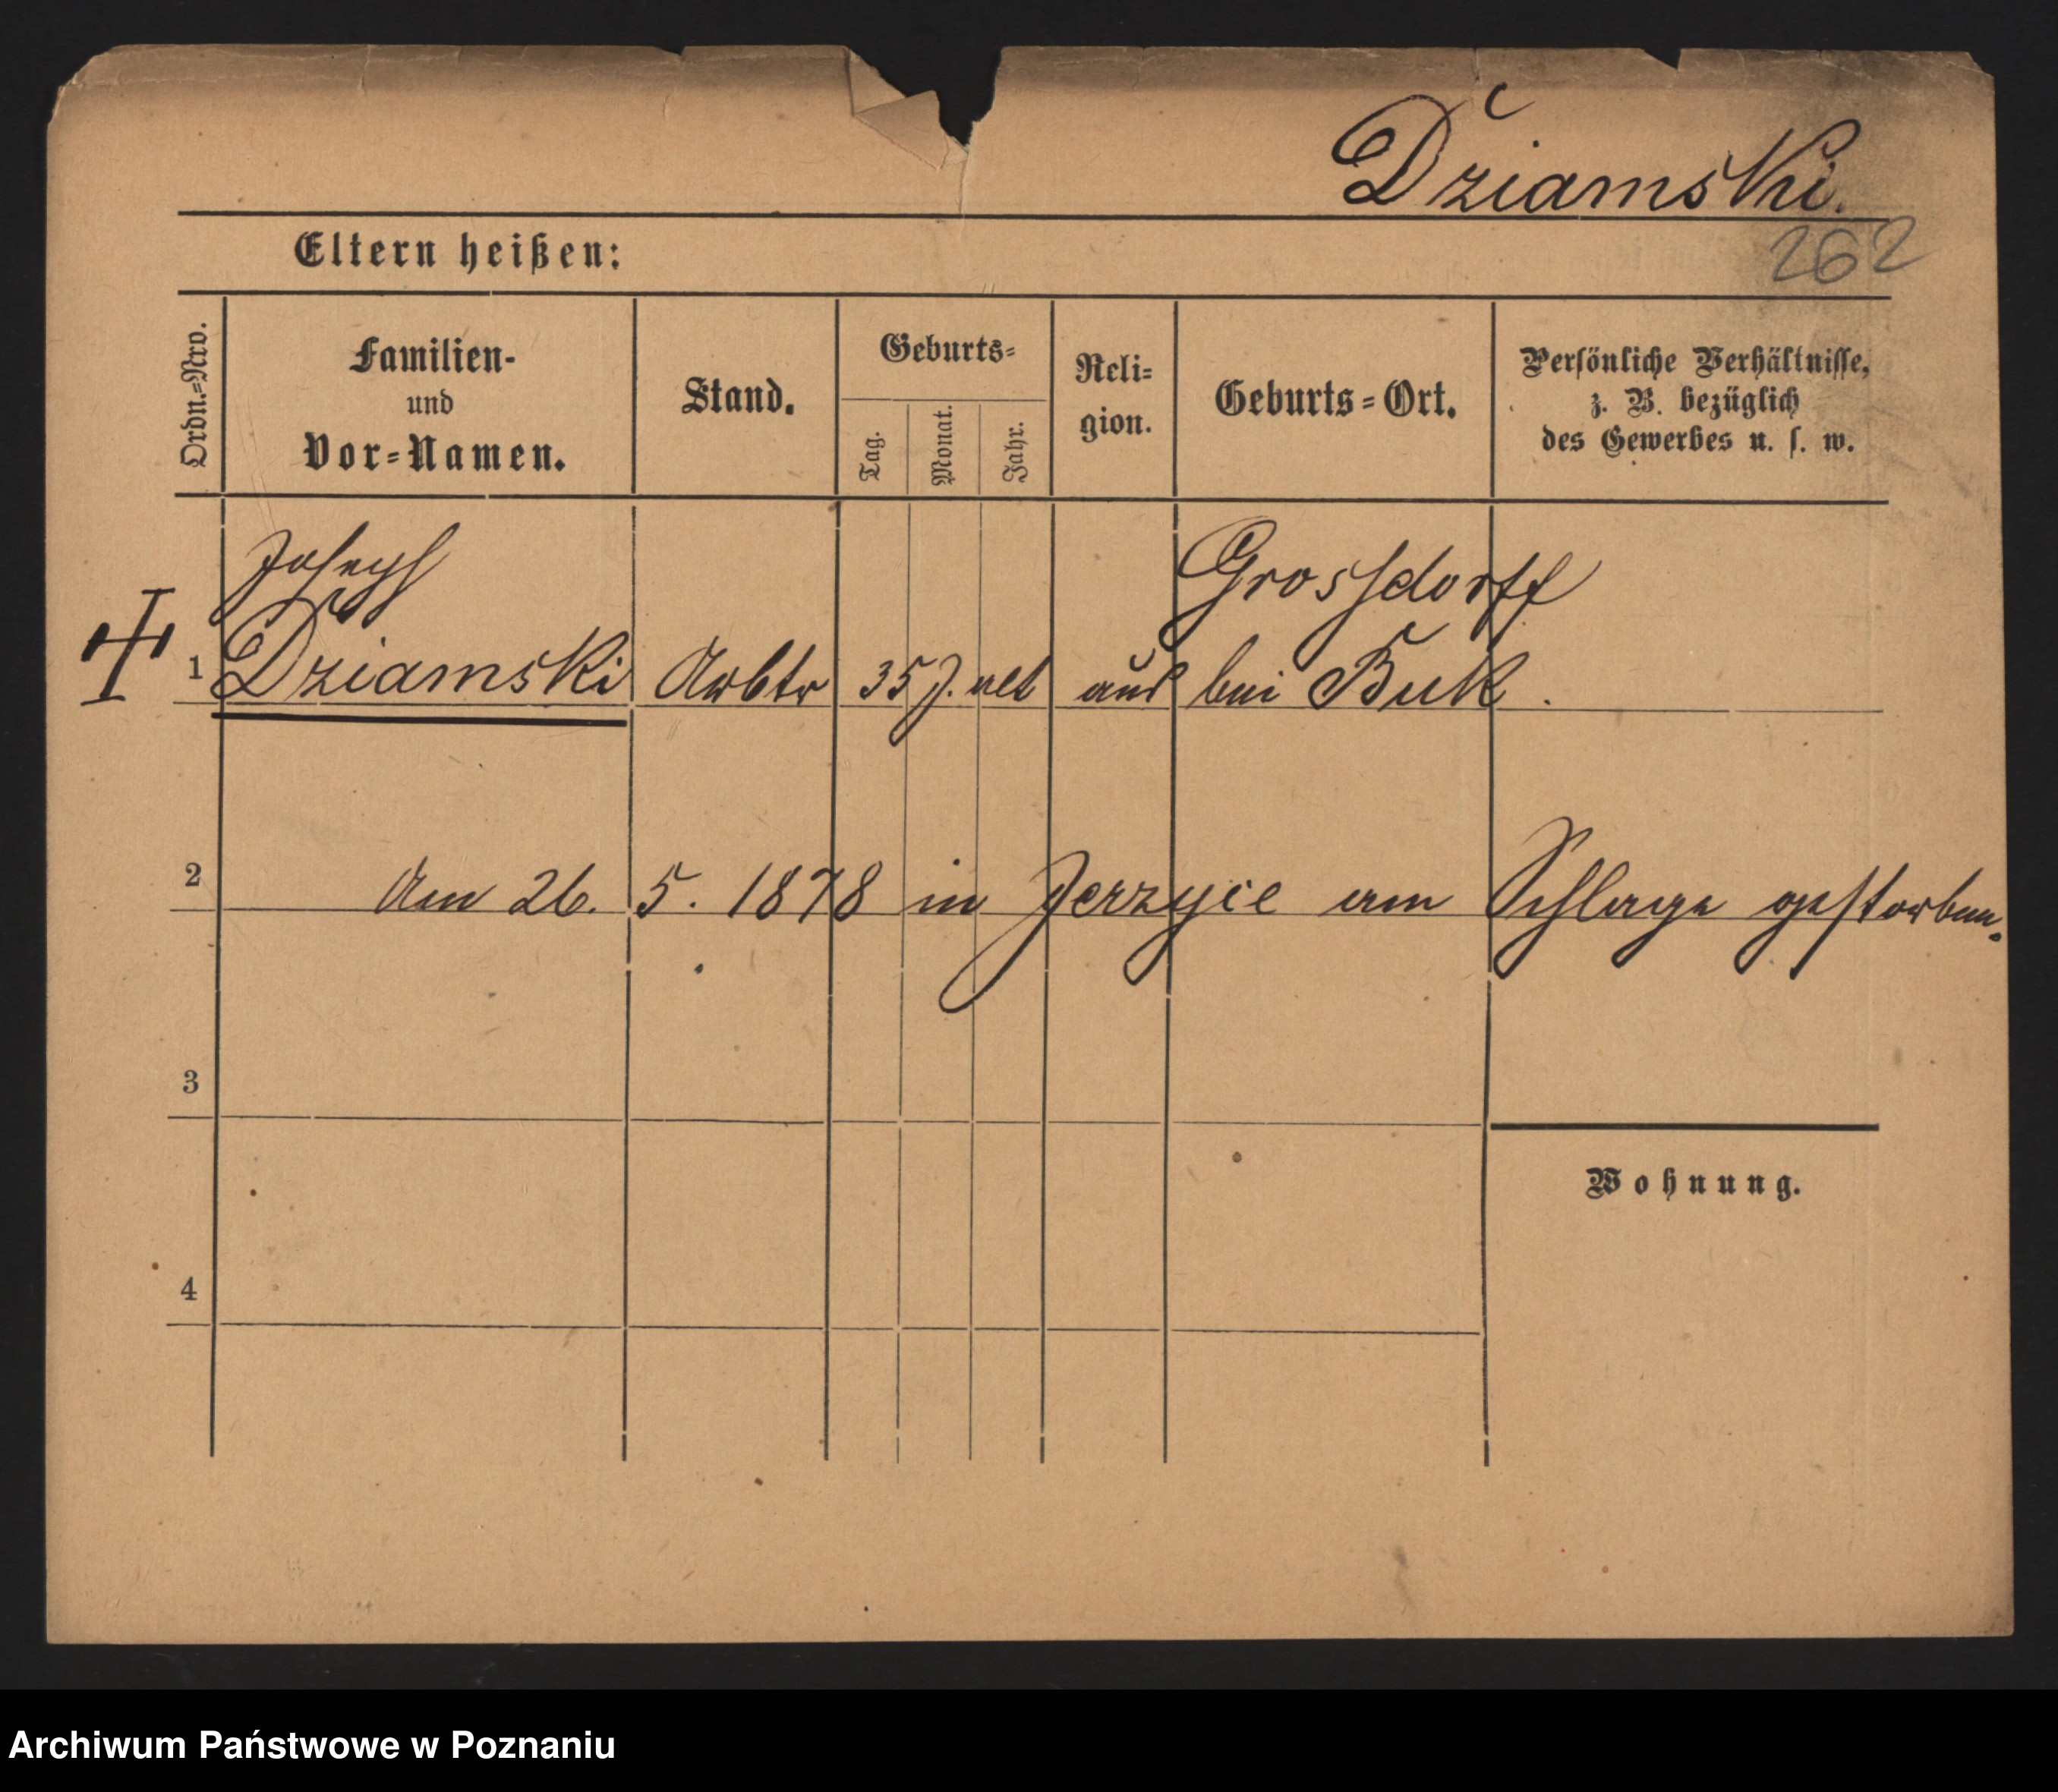 Dziamski.
262
Eltern heißen:
Ordn.=Nro.
Familien-
und
Vor=Namen.
Stand.
Geburts=
Tag.
Monat.
Jahr.
Reli=
gion.
Geburts=Ort.
Persönliche Verhältnisse,
z. B. bezüglich
des Gewerbes u. s. w.
Joseph Grossdorff
1 Dziamski Arbtr 35 J. alt aus bei Buk.
2 Am 26. 5. 1878 in Jerzyce am Schlage gestorben.
3
Wohnung.
4
Archiwum Państwowe w Poznaniu